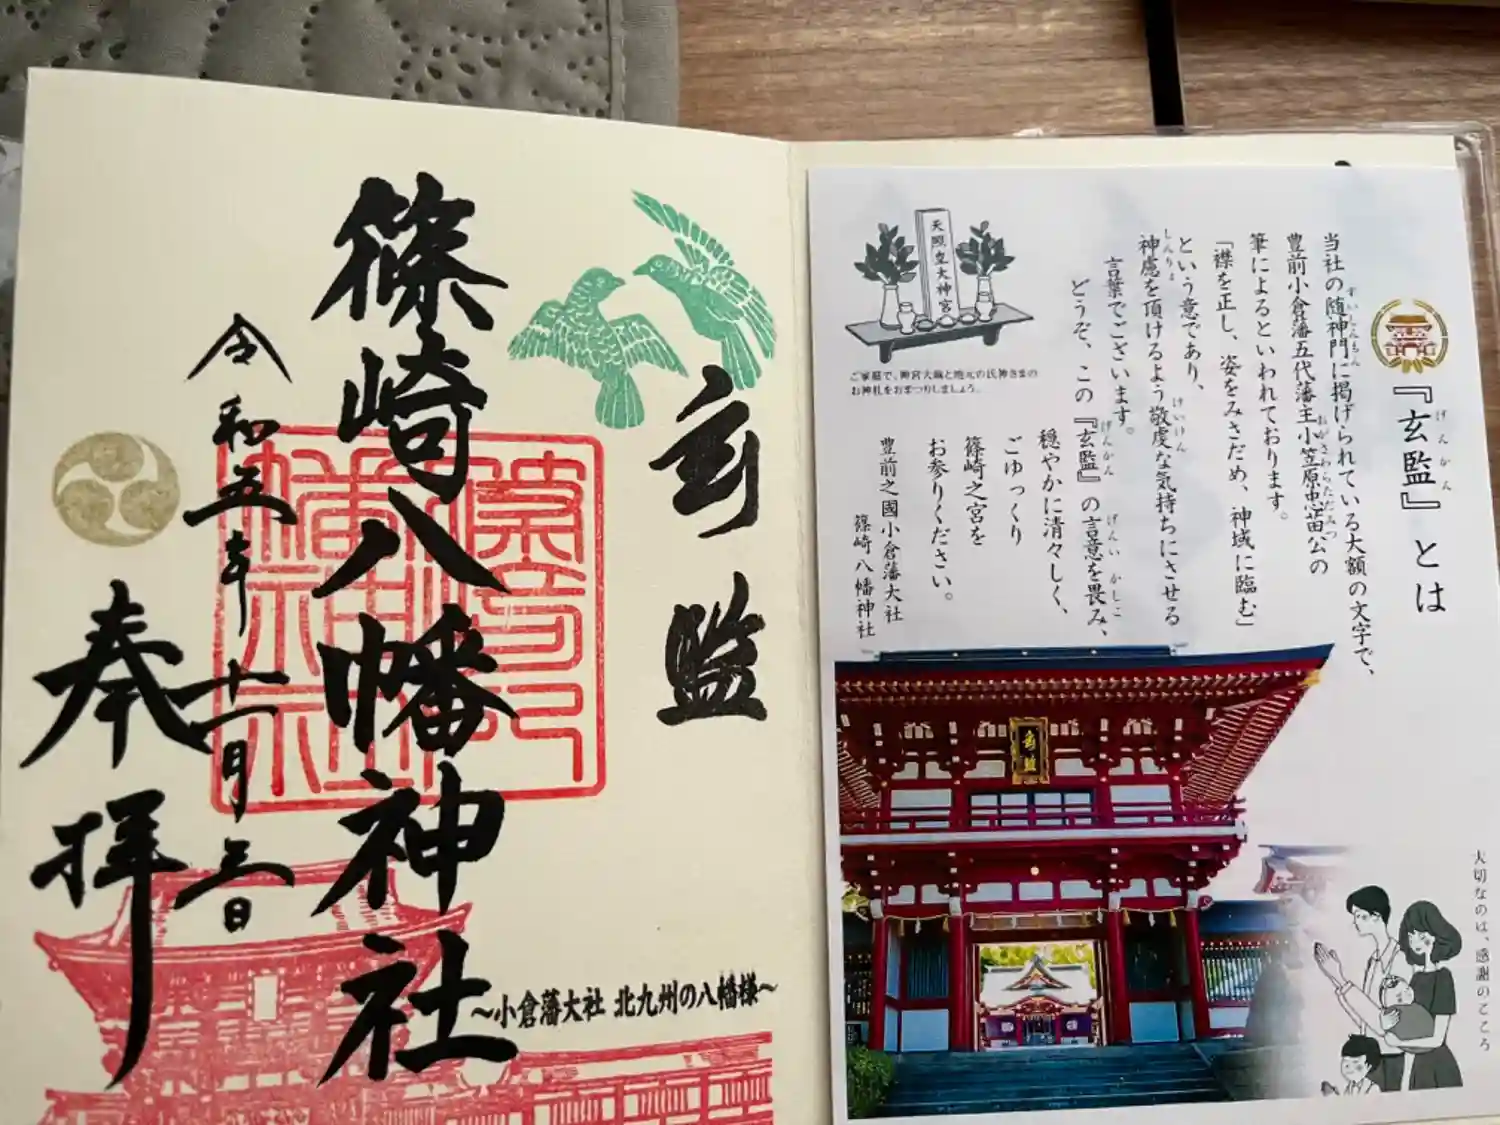 玄監
篠崎八幡神社
令和五年十一月三日
奉拝
〜小倉藩大社 北九州の八幡様〜
『玄監』とは
げんかん
当社の随神門に掲げられている大額の文字で、
ずいしんもん
豊前小倉藩五代藩主小笠原忠苗公の
おがさわらただみつ
筆によるといわれております。
「襟を正し、姿をみさだめ、神域に臨む」
という意であり、
神慮を頂けるよう敬虔な気持ちにさせる
しんりょ
けいけん
言葉でございます。
どうぞ、この『玄監』の言意を畏み、
げんかん
げんい
かしこ
穏やかに清々しく、
ごゆっくり
篠崎之宮を
お参りください。
豊前之國小倉藩大社
篠崎八幡神社
天照皇大神宮
ご家庭で、神宮大麻と地元の氏神さまの
お神札をおまつりしましょう。
玄監
大切なのは、感謝のこころ